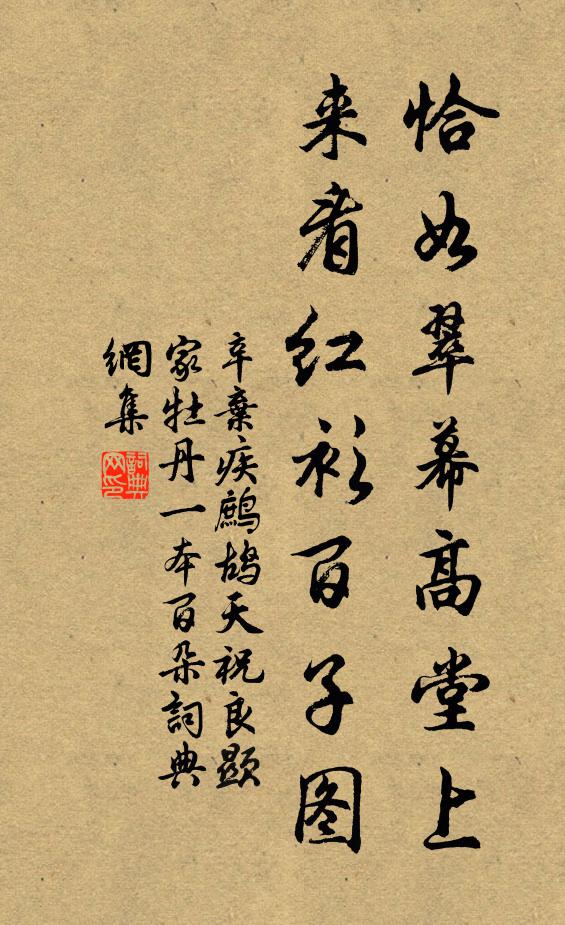 恰如翠幕高堂上
来看红衫百子图
辛棄疾鷓鴣天祝良顯
家牡丹一本百朵詞典
網集
詞典
网印